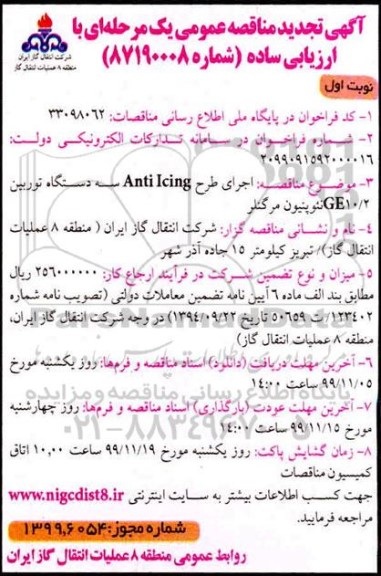 آگهی تجدید مناقصه عمومی یک مرحله‌ای با
ارزیابی ساده (شماره ۸۷۱۹۰۰۰۸)
شرکت انتقال گاز ایران
منطقه ۸ عملیات انتقال گاز
نوبت اول
۱- کد فراخوان در پایگاه ملی اطلاع رسانی مناقصات: ۳۳۰۹۸۰۶۲
۲- شماره فراخوان در سامانه تدارکات الکترونیکی دولت:
۲۰۹۹۰۹۱۵۹۲۰۰۰۰۱۶
۳- موضوع مناقصه: اجرای طرح Anti Icing سه دستگاه توربین
GE۱۰/۲نئوپنیون مرگنلر
۴- نام و نشانی مناقصه گزار: شرکت انتقال گاز ایران ( منطقه ۸ عملیات
انتقال گاز)/ تبریز کیلومتر ۱۵ جاده آذر شهر
۵- میزان و نوع تضمین شرکت در فرآیند ارجاع کار: ۲۵۶۰۰۰۰۰۰ ریال
مطابق بند الف ماده ۶ آیین نامه تضمین معاملات دولتی (تصویب نامه شماره
۱۲۳۴۰۲/ت ۵۰۶۵۹ تاریخ ۱۳۹۴/۰۹/۲۲) در وجه شرکت انتقال گاز ایران،
منطقه ۸ عملیات انتقال گاز)
۶- آخرین مهلت دریافت (دانلود) اسناد مناقصه و فرم‌ها: روز یکشنبه مورخ
۹۹/۱۱/۰۵ ساعت ۱۴:۰۰
۷- آخرین مهلت عودت (بارگذاری) اسناد مناقصه و فرم‌ها: روز چهارشنبه
مورخ ۹۹/۱۱/۱۵ ساعت ۱۴:۰۰
۸- زمان گشایش پاکت: روز یکشنبه مورخ ۹۹/۱۱/۱۹ ساعت ۱۰,۰۰ اتاق
کمیسیون مناقصات
جهت کسب اطلاعات بیشتر به سایت اینترنتی www.nigcdist8.ir
مراجعه فرمایید.
شماره مجوز: ۱۳۹۹,۶۰۵۴
روابط عمومی منطقه ۸ عملیات انتقال گاز ایران